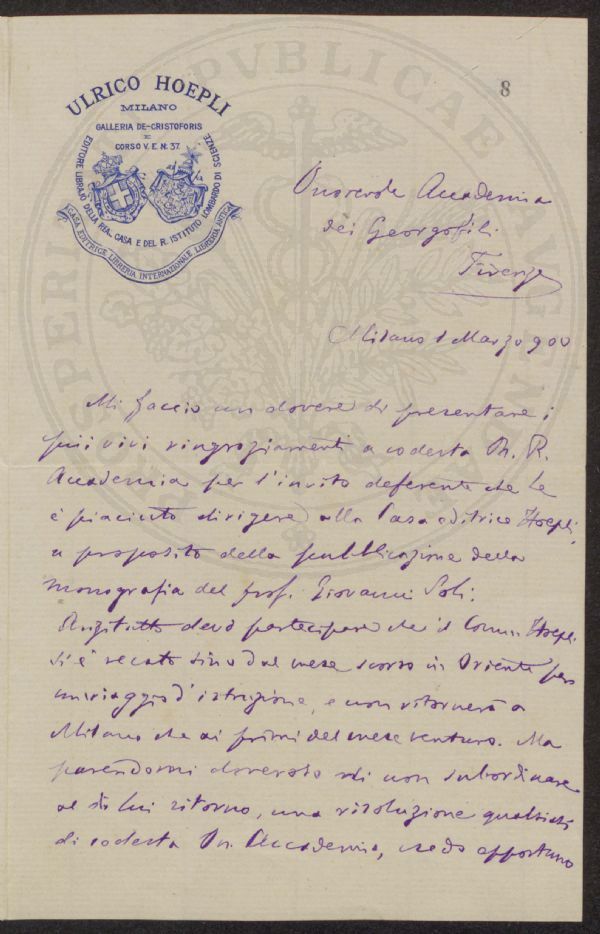 8
ULRICO HOEPLI
MILANO
GALLERIA DE-CRISTOFORIS
E
CORSO V. E. N. 37.
EDITORE LIBRAIO DELLA REAL CASA E DEL R. ISTITUTO LOMBARDO DI SCIENZE
CASA EDITRICE LIBRERIA INTERNAZIONALE LIBRERIA ANTICA
Onorevole Accademia
dei Georgofili
Firenze
Milano 1 Marzo 900
Mi faccio un dovere di presentare i
più vivi ringraziamenti a codesta On. R.
Accademia per l'invito deferente che Le
è piaciuto dirigere alla Casa editrice Hoepli,
a proposito della pubblicazione della
monografia del prof. Giovanni Soli.
Anzitutto devo partecipare che il Comm. Hoepli
si è recato sino dal mese scorso in Oriente per
un viaggio d'istruzione, e non ritornerà a
Milano che ai primi del mese venturo. Ma
parendomi doveroso di non subordinare
al di lui ritorno, una risoluzione qualsiasi
di codesta On. Accademia, credo opportuno
PROSPERITATI PUBLICAE AUGENDAE